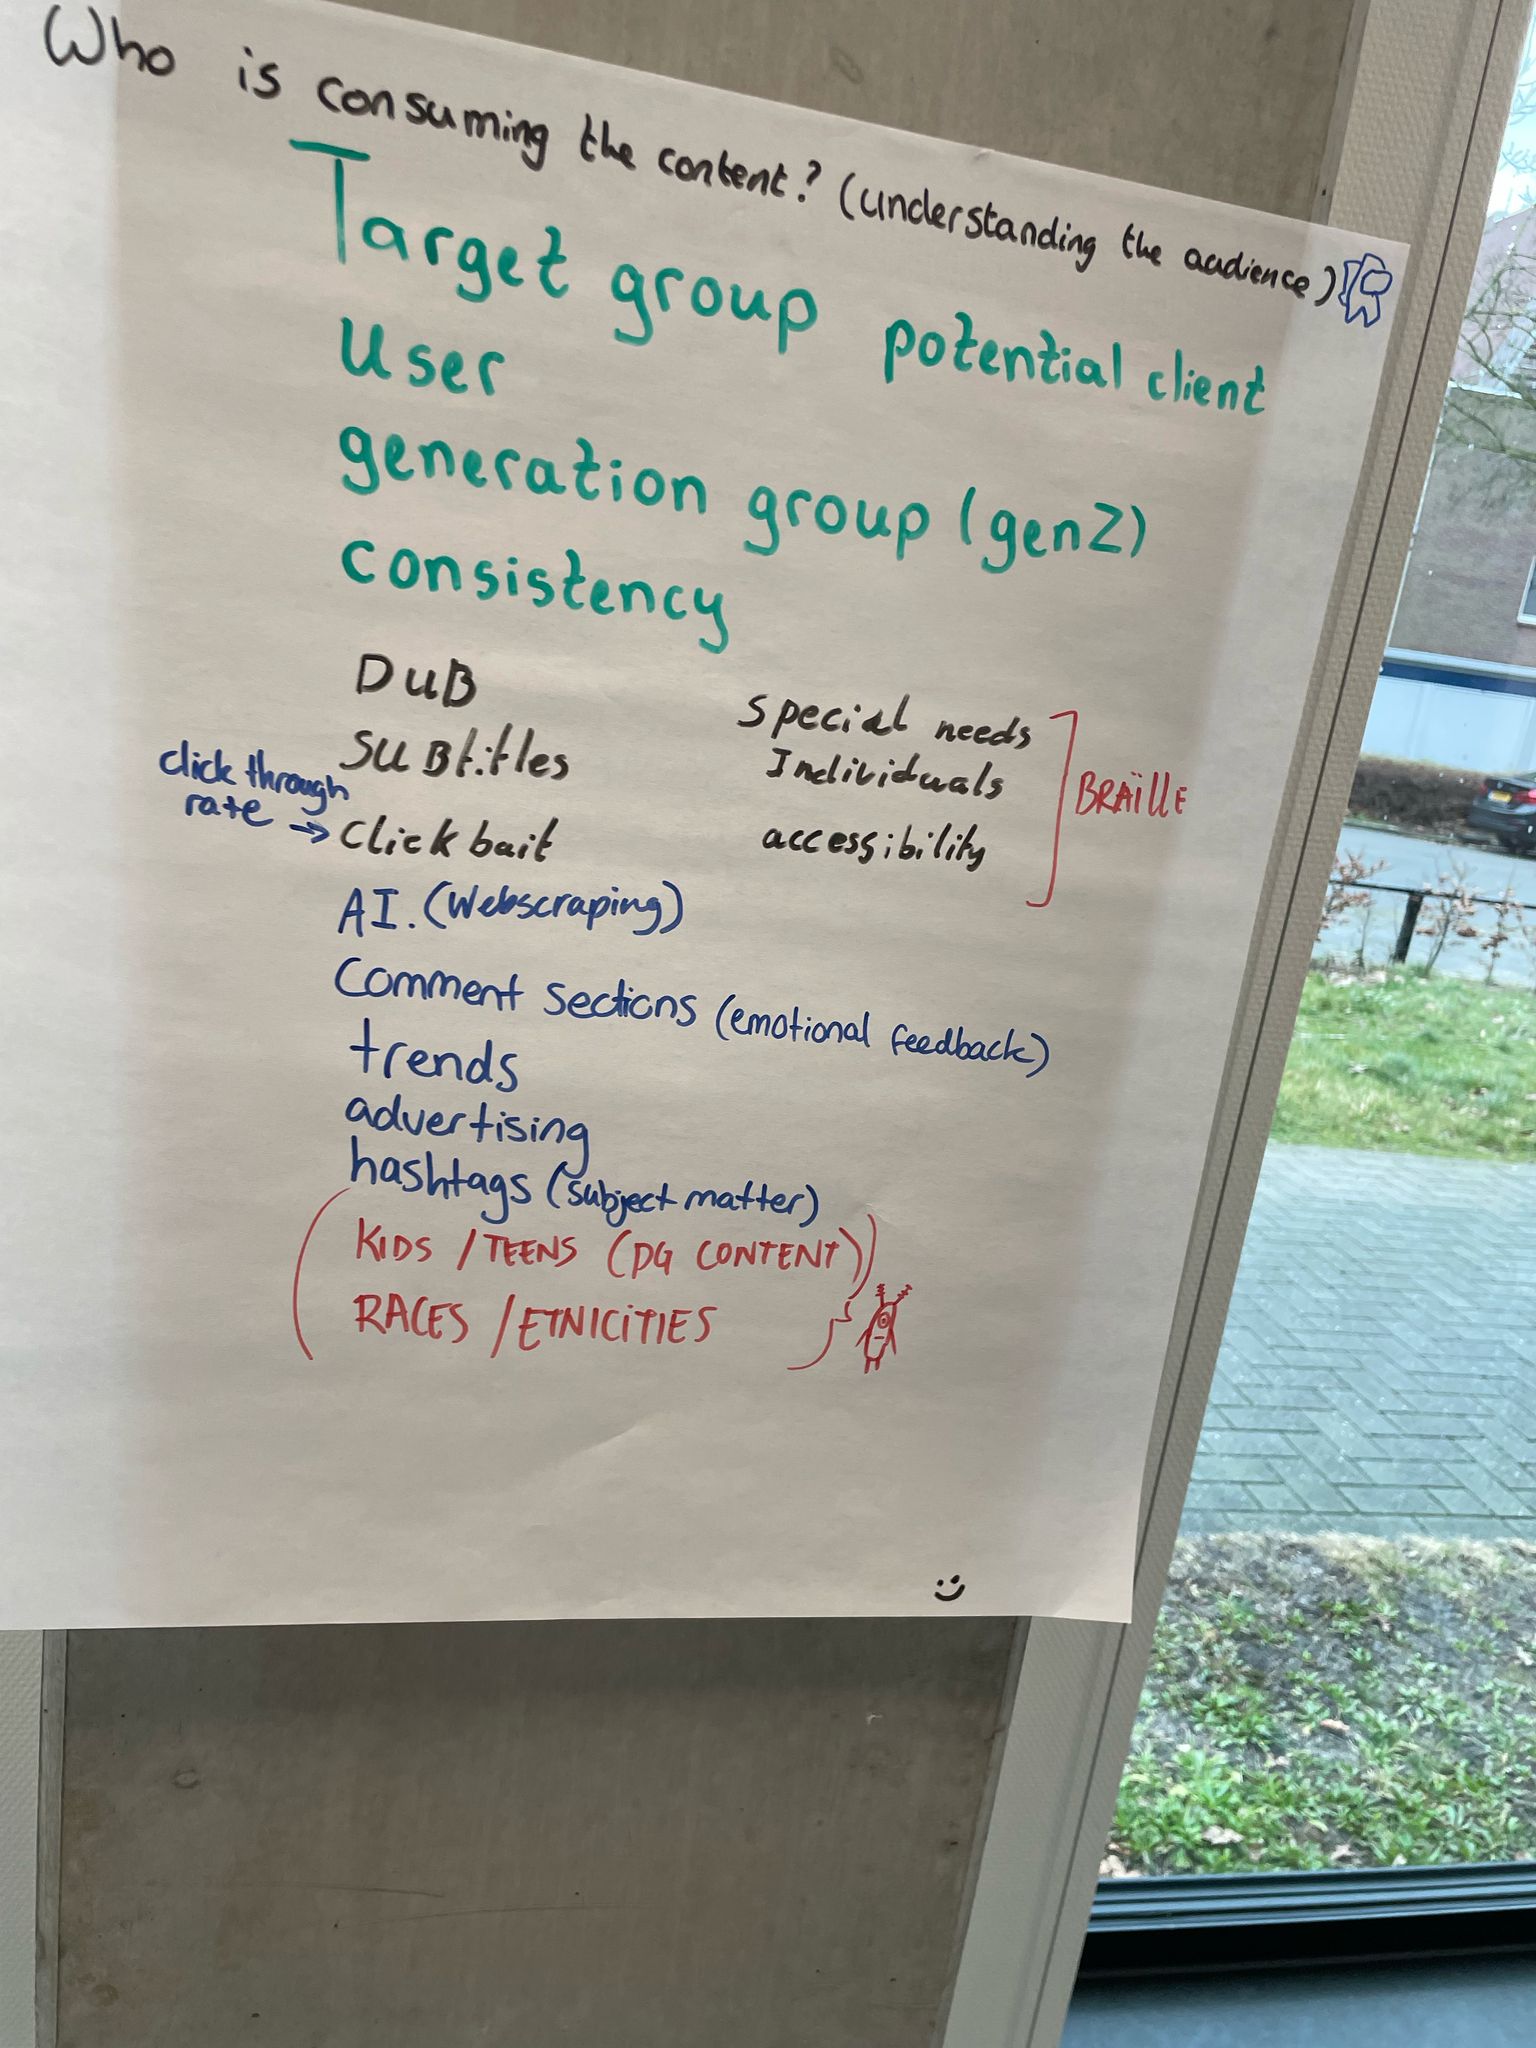 Who is consuming the content? (understanding the audience)
Target group potential client
User
generation group (genZ)
consistency
DUB
SUBtitles
click through
rate → Clickbait
special needs
Individuals
accessibility
BRAÏLLE
AI. (Webscraping)
Comment sections (emotional feedback)
trends
advertising
hashtags (subject matter)
(KIDS / TEENS (PG CONTENT))
RACES / ETNICITIES